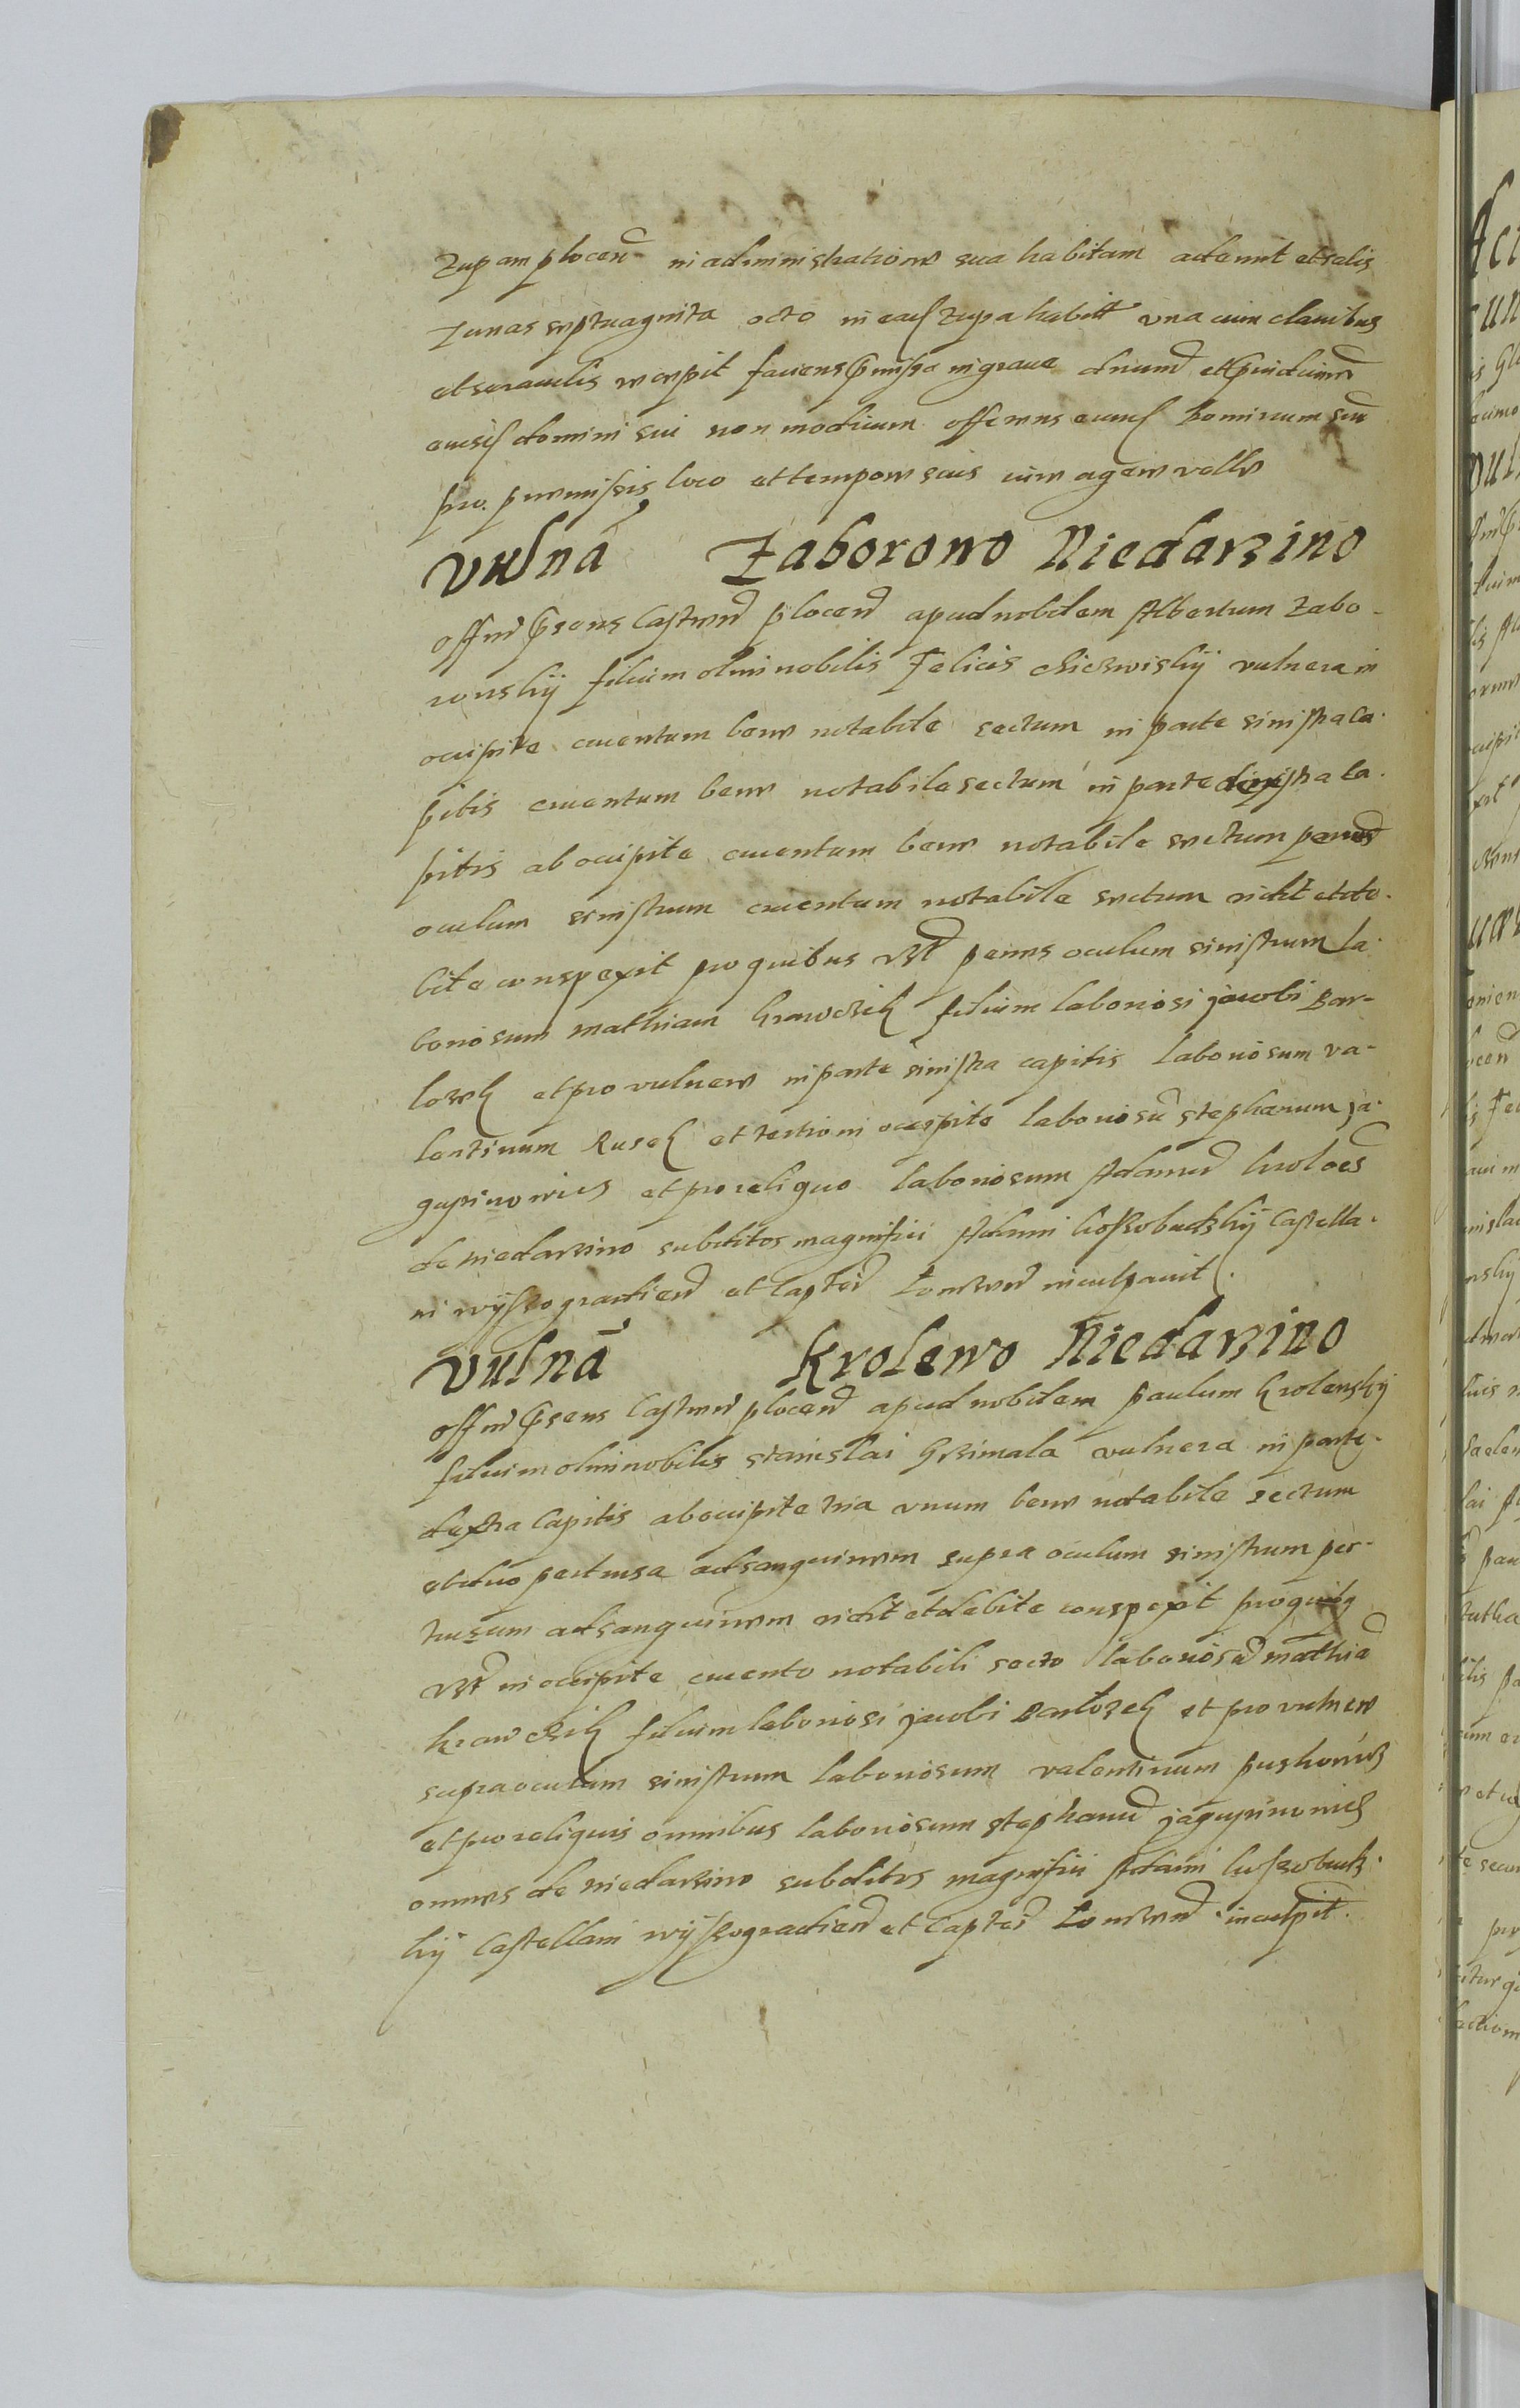 zupam plocen in administratione sua habitam ademit et salis
tunas septuaginta octo in ead zupa habitt una cum clavibus
et seraculis recepit faciens pmissa in grave dnum et pindicium
eiusd domini sui non modicum offerens eund Dominum suu
pro premissis loco et tempore suis iure agere velle
Vulna Zaborowo Niedarzino
Offm psens Castren plocen apud nobilem Albertum Zabo-
rowskij filium olim nobilis Felicis vulnera in
occipite cruentum bene notabile sectum in parte sinistra ca-
pitis cruentum bene notabile sectum in parte dextra ca-
pitis ab occipite cruentum bene notabile sectum penes
oculum sinistrum cruentum notabile sectum vidit et de-
bite conspexit pro quibus vzt penes oculum sinistrum la-
boriosum Mathiam Krawczik filium laboriosi Jacobi Bar-
lozek et pro vulnere in parte sinistra capitis laboriosum Va-
lentinum Rusek et tertio in occipite laboriosu Stephanum Ja-
et pro reliquo laboriosum Adamum
de Niedarzino subditos magnifici Adami Kossobudzkij Castella-
ni wijssogradien et Captei inculpavit
Vulna Krolewo Niedarzino
Offm psens Castren plocen apud nobilem Paulum Krolewskij
filium olim nobilis Stanislai Grzimala vulnera in parte
dextra capitis ab occipite tria unum bene notabile sectum
et duo pertusa ad sanguinem supra oculum sinistrum per-
tusum ad sanguinem vidit et debite conspexit pro quibq
vzt in occipite cruento notabili secto laboriosu Mathia
Krawczik filium laboriosi Jacobi Bartozek et pro vulnere
supra oculum sinistrum laboriosum Valentinum
et pro reliquis omnibus laboriosum Stephanu
omnes de Niedarzino subditos magnifici Adami Kossobudz-
kij Castellani wijssogradien et Captei inculpit